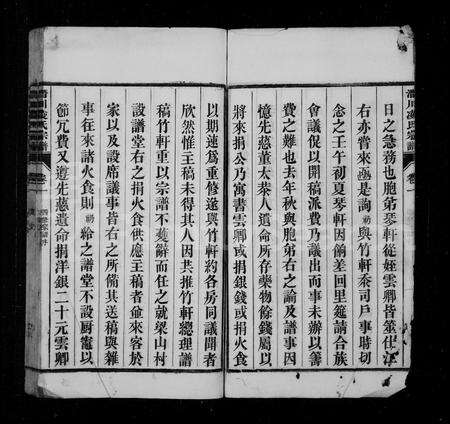 日之急務也胞弟琴軒從姪雲卿皆筮仕江
右亦嘗來函是詢勷與竹軒忝司戶事時切
念之壬午初夏琴軒因餉差回里筵請合族
會議促以開稿派費乃議出而事未辦以籌
費之難也去年秋與胞弟右之論及譜事因
憶先慈董太恭人遺命所存藥物餘錢屬以
將來捐公乃寓書雲卿或捐銀錢或捐火食
以期速爲重修遂與竹軒約各房同議聞者
欣然惟主稿未得其人因共推竹軒總理譜
稿竹軒重以宗譜不獲辭而任之就梁山村
設譜堂右之捐火食供應主稿者僉來客於
家以及設席議事皆右之所備其送稿與雜
事往來諸火食則勷給之譜堂不設厨竈以
節冗費又遵先慈遺命捐洋銀二十元雲卿
氏宗譜
卷一